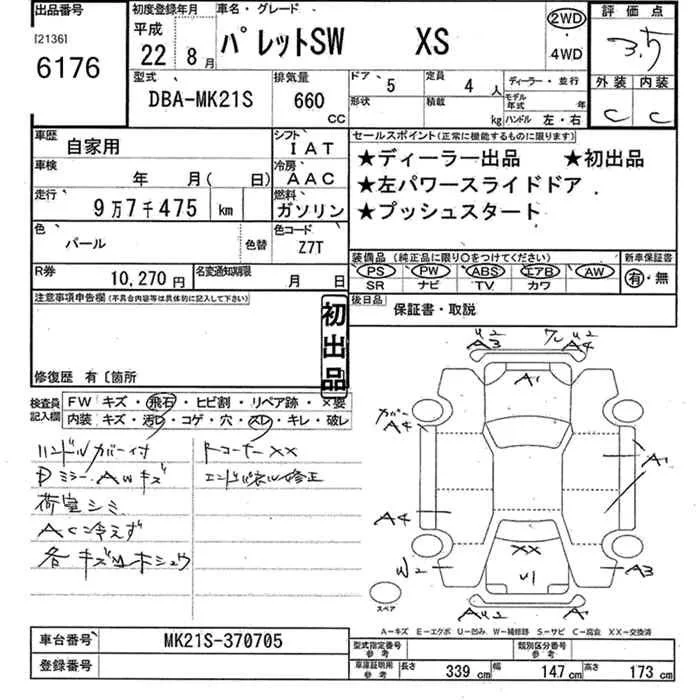 出品番号
[2136]
6176
初度登録年月
平成
22年 8月
車名・グレード
パレットSW XS
2WD
・
4WD
評価点
3.5
外装 内装
C C
型式
DBA-MK21S
排気量
660 CC
ドア 5
形状
定員 4 人
積載 kg
ディーラー・並行
モデル年式 年
ハンドル 左・右
車歴 自家用
シフト IAT
車検 年 月( 日)
冷房 AAC
走行 9万7千475 km
燃料 ガソリン
色 パール 色替
色コード Z7T
R券 10,270円
名変通知期限 月 日
セールスポイント(正常に機能するものに限ります)
★ディーラー出品 ★初出品
★左パワースライドドア
★プッシュスタート
装備品 (純正品に限り○をつけてください)
PS PW ABS エアB AW
SR ナビ TV カワ
新車保証書
有・無
後日品 保証書・取説
注意事項申告欄(不具合内容等は具体的に記入して下さい)
初出品
修復歴 有〔箇所
検査員記入欄
FW キズ・飛石・ヒビ割・リペア跡・×要
内装 キズ・汚レ・コゲ・穴・スレ・キレ・破レ
ハンドルカバー付
Dミラー、AWキズ
荷室シミ
AC冷えず
トコーナーXX
エンドパネル修正
A3
A4
A1
カバー
A4
A1
A4
W2
XX
U1
A3
スペア
A-キズ E-エクボ U-凹み W-補修跡 S-サビ C-腐食 XX-交換済
車台番号 MK21S-370705
登録番号
型式指定番号 参考
類別区分番号 参考
車庫証明用 参考
長さ 339 cm 幅 147 cm 高さ 173 cm